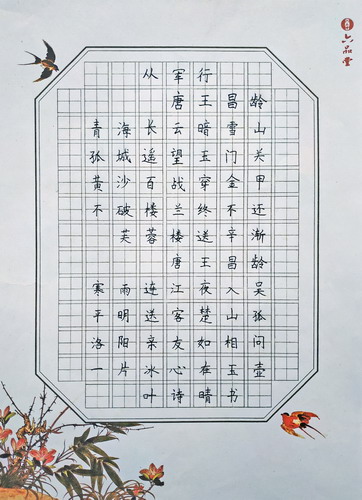 六品堂
从军行
唐王昌龄
青海长云暗雪山
孤城遥望玉门关
黄沙百战穿金甲
不破楼兰终不还
芙蓉楼送辛渐
唐王昌龄
寒雨连江夜入吴
平明送客楚山孤
洛阳亲友如相问
一片冰心在玉壶
叶诗晴书